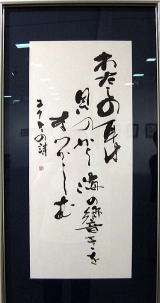 わたしの耳は
貝のから海の響きを
なつかしむ
コクトーの詩